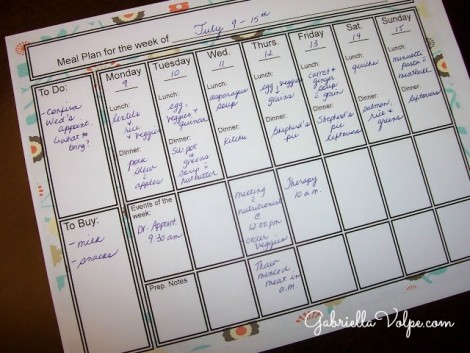 Meal Plan for the week of July 9 - 15th
To Do:
- confirm
Wed's
appoint.
(what to
bring?)
Monday
9
Lunch:
lentils
+
rice
+
veggies
Dinner:
pork
stew
+
apples
Tuesday
10
Lunch:
egg,
veggies +
quinoa
Dinner:
Sw. pot
+
greens
soup +
nutbutter
Wed.
11
Lunch:
asparagus
soup
Dinner:
Thurs.
12
Lunch:
egg, veggies
grains
Dinner:
Shepherd's
pie
Friday
13
Lunch:
carrot +
ginger
soup
+
grain
Dinner:
Shepherd's
pie
leftovers
Sat.
14
Lunch:
quiche
Dinner:
salmon,
rice +
greens
Sunday
15
Lunch:
pasta +
meatloaf
Dinner:
leftovers
To Buy:
- milk
- snacks
Events of the
week:
Dr. Appoint.
9:30 am
meeting
nutritionist
@
12:00 pm
order
veggies
Therapy
10 a.m.
Prep. Notes
Thaw
minced
meat in
a.m.
GabriellaVolpe.com